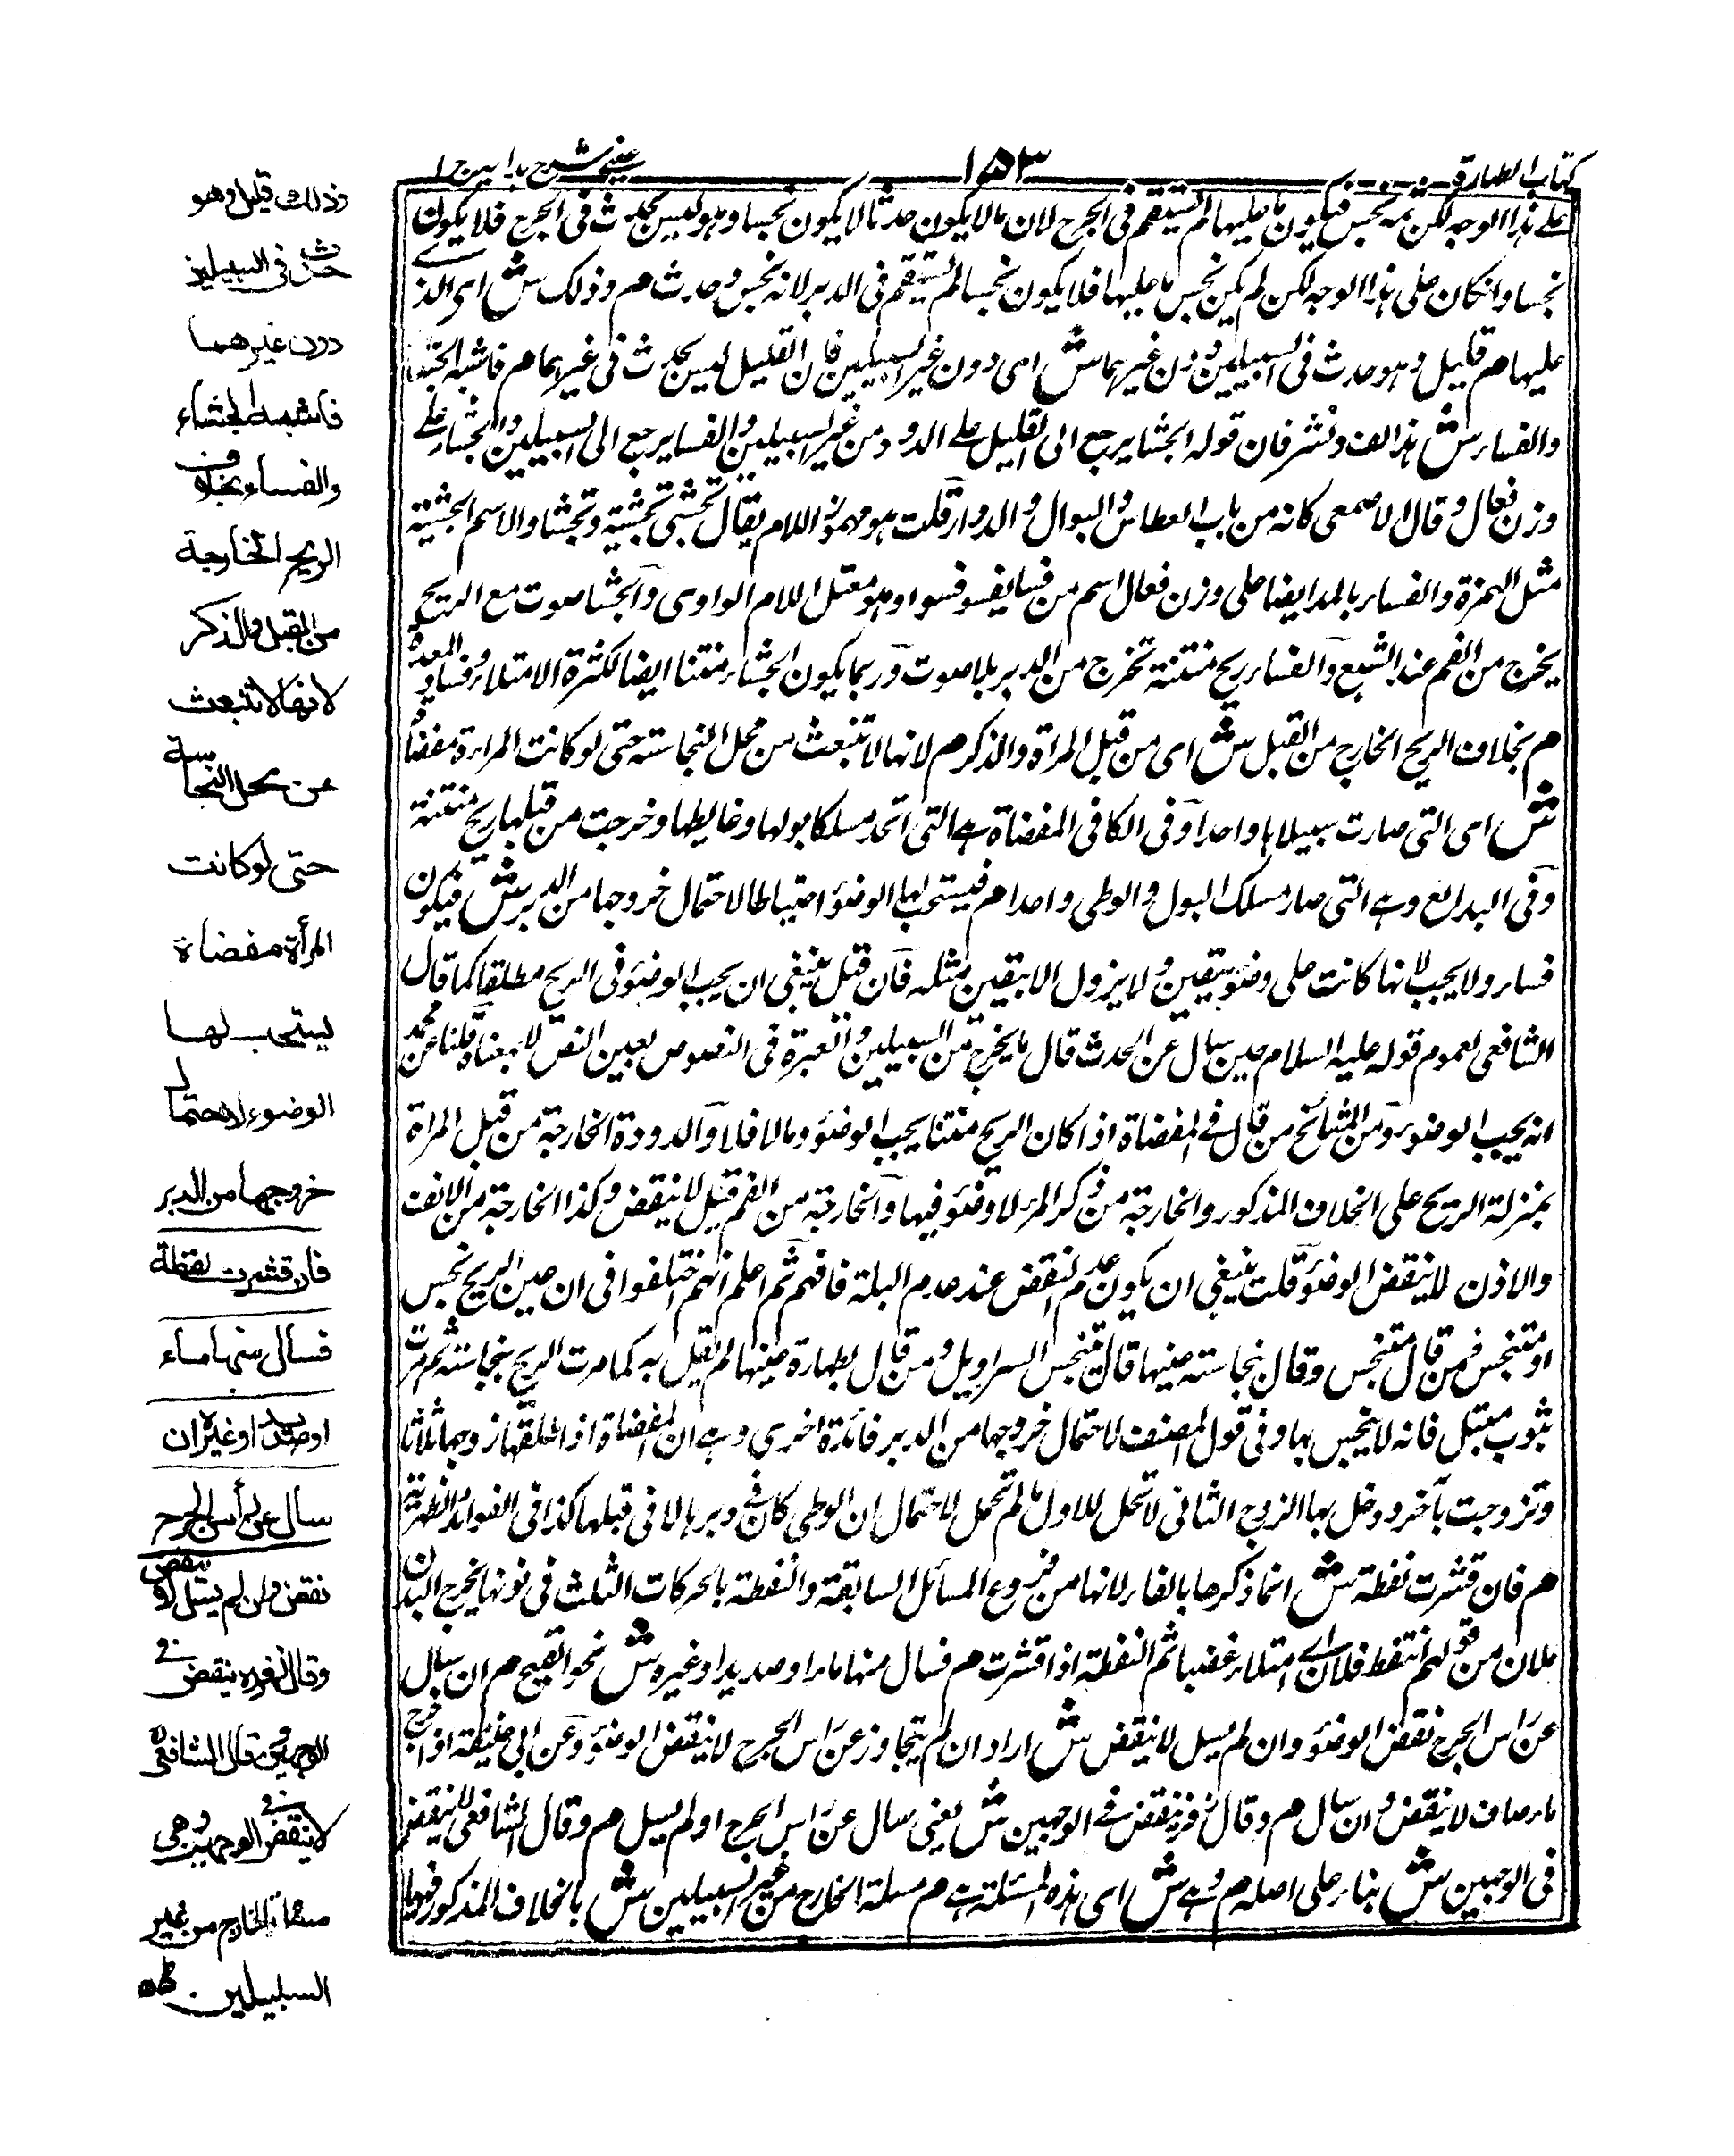 كتاب الطهارة
١٥٣
عيني شرح هدايه ج ١
على هذا الوجه لكن ثمه نجس فيكون ما عليها لم يستقم في الجرح لان مالا يكون حدثا لا يكون نجسا وهو ليس بحدث في الجرح فلا يكون
نجسا وانكان على هذا الوجه لكن لم يكن نجس ما عليها فلا يكون نجسا لم يستقم في الدبر لانه نجس وحدث م وذلك ش اى الذى
عليها م قليل وهو حدث في السبيلين دون غيرهما ش اى دون غير السبيلين فان القليل ليس بحدث في غيرهما م فاشبه الجشاء
والفساء ش هذا لف ونشر فان قوله الجشا يرجع الى القليل على الدود من غير السبيلين والفسا يرجع الى السبيلين والجشاء على
وزن فعال وقال الاصمعى كانه من باب العطاس والبوال والدوار قلت هو مهموز اللام يقال تجشى تجشية وتجشا والاسم الجشية
مثل الهمزة والفساء بالمد ايضا على وزن فعال اسم من فسا يفسو فسوا وهو معتل اللام الواوى والجشا صوت مع الريح
يخرج من الفم عند الشبع والفساء ريح منتنة تخرج من الدبر بلا صوت وربما يكون الجشاء منتنا ايضا لكثرة الامتلاء وفساد المعدة
م بخلاف الريح الخارج من القبل ش اى من قبل المراة والذكر م لانها لا تنبعث من محل النجاسته حتى لو كانت المراءة مفضاة
ش اى التى صارت سبيلاها واحدا وفى الكافى المفضاة هے التى اتحد مسلكا بولها وغايطها وخرجت من قبلها ريح منتنة
وفى البدائع وهے التى صار مسلك البول والوطى واحدا م فيستحب لها الوضؤ احتياطا لاحتمال خروجها من الدبر ش فيكون
فساء ولا يجب لانها كانت على وضؤ بيقين ولا يزول الا بيقين مثله فان قيل ينبغى ان يجب الوضؤ فى الريح مطلقا كما قال
الشافعى لعموم قوله عليه السلام حين سال عن الحدث قال ما يخرج من السبيلين والعبرة فى النصوص لعين النص لا بمعناه قلنا عن محمد
انه يجب الوضوء ومن المشائخ من قال فى المفضاة اذا كان الريح منتنا يجب الوضؤ ومالا فلا والدودة الخارجة من قبل المراة
بمنزلة الريح على الخلاف المذكور والخارجة من ذكر المرء لا وضؤ فيها والخارجة من الفم قيل لا ينقض وكذا الخارجة من الانف
والاذن لا ينقض الوضؤ قلت ينبغى ان يكون عدم النقض عند عدم البلة فافهم ثم اعلم انهم اختلفوا فى ان عين الريح نجس
او متنجس فمن قال متنجس وقال نجاسته عينها قال يتنجس السراويل ومن قال بطهارة عينها لم يقل به كما مرت الريح بنجاسته ثم مرت
بثوب مبتل فانه لا ينجس بها وفى قول المصنف لاحتمال خروجها من الدبر فائدة اخرى وهے ان المفضاة اذا طلقها زوجها ثلاثا
وتزوجت بآخر ودخل بها الزوج الثانى لا تحل للاول ما لم تحمل لاحتمال ان الوطى كان فى دبرها لا فى قبلها كذا فى الفوائد الظهيرية
م فان قشرت نفطة ش انما ذكرها بالفاء لانها من فروع المسائل السابقة والنفطة بالحركات الثلث فى نونها يخرج البدن
ملان من قولهم انتفط فلان اے امتلاء غضبا ثم النفطة اذا قشرت م فسال منها ماء او صديد او غيره ش نحو القيح م ان سال
عن راس الجرح نقض الوضؤ وان لم يسيل لا ينقض ش اراد ان لم يتجاوز عن راس الجرح لا ينقض الوضؤ وعن ابى حنيفة اذا خرج
ماء صاف لا ينقض وان سال م وقال زفر ينقض فى الوجهين ش يعنى سال عن راس الجرح او لم يسيل م وقال الشافعى لا ينقض
فى الوجهين ش بناء على اصله م وهے ش اى هذه المسئلة هے م مسئلة الخارج من غير السبيلين ش بالخلاف المذكور فيها
وذلك قليل وهو
حدث فى السبيلين
دون غيرهما
فاشبه الجشاء
والفساء بخلاف
الريح الخارجة
من القبل والذكر
لانها لا تنبعث
عن محل النجاسة
حتى لو كانت
المرأة مفضاة
يستحب لها
الوضوء لاحتمال
خروجها من الدبر
فان قشرت نفطة
فسال منها ماء
او صديد او غيره ان
سال عن رأس الجرح
نقض وان لم يسل لا ينقض
وقال زفر ره ينقض فى
الوجهين وقال الشافعى ره
لا ينقض فى الوجهين وهى
مسئلة الخارج من غير
السبيلين